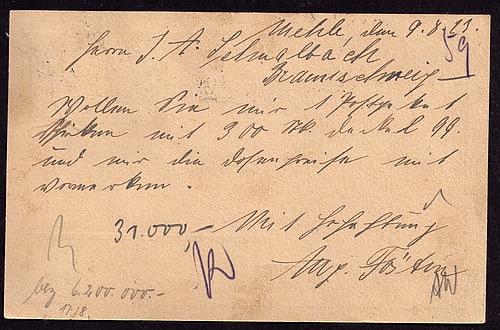 Mehle, den 9.8.23.
59
Herrn J. A. Schmalbach
Braunschweig
Wollen Sie mir 1 Postpaket
schicken mit 300 St. Deckel 99.
und mir die Dosenpreise mit
vermerken.
31.000,- Mit Hochachtung
Aug.
bez 6.200.000.-
17/8.